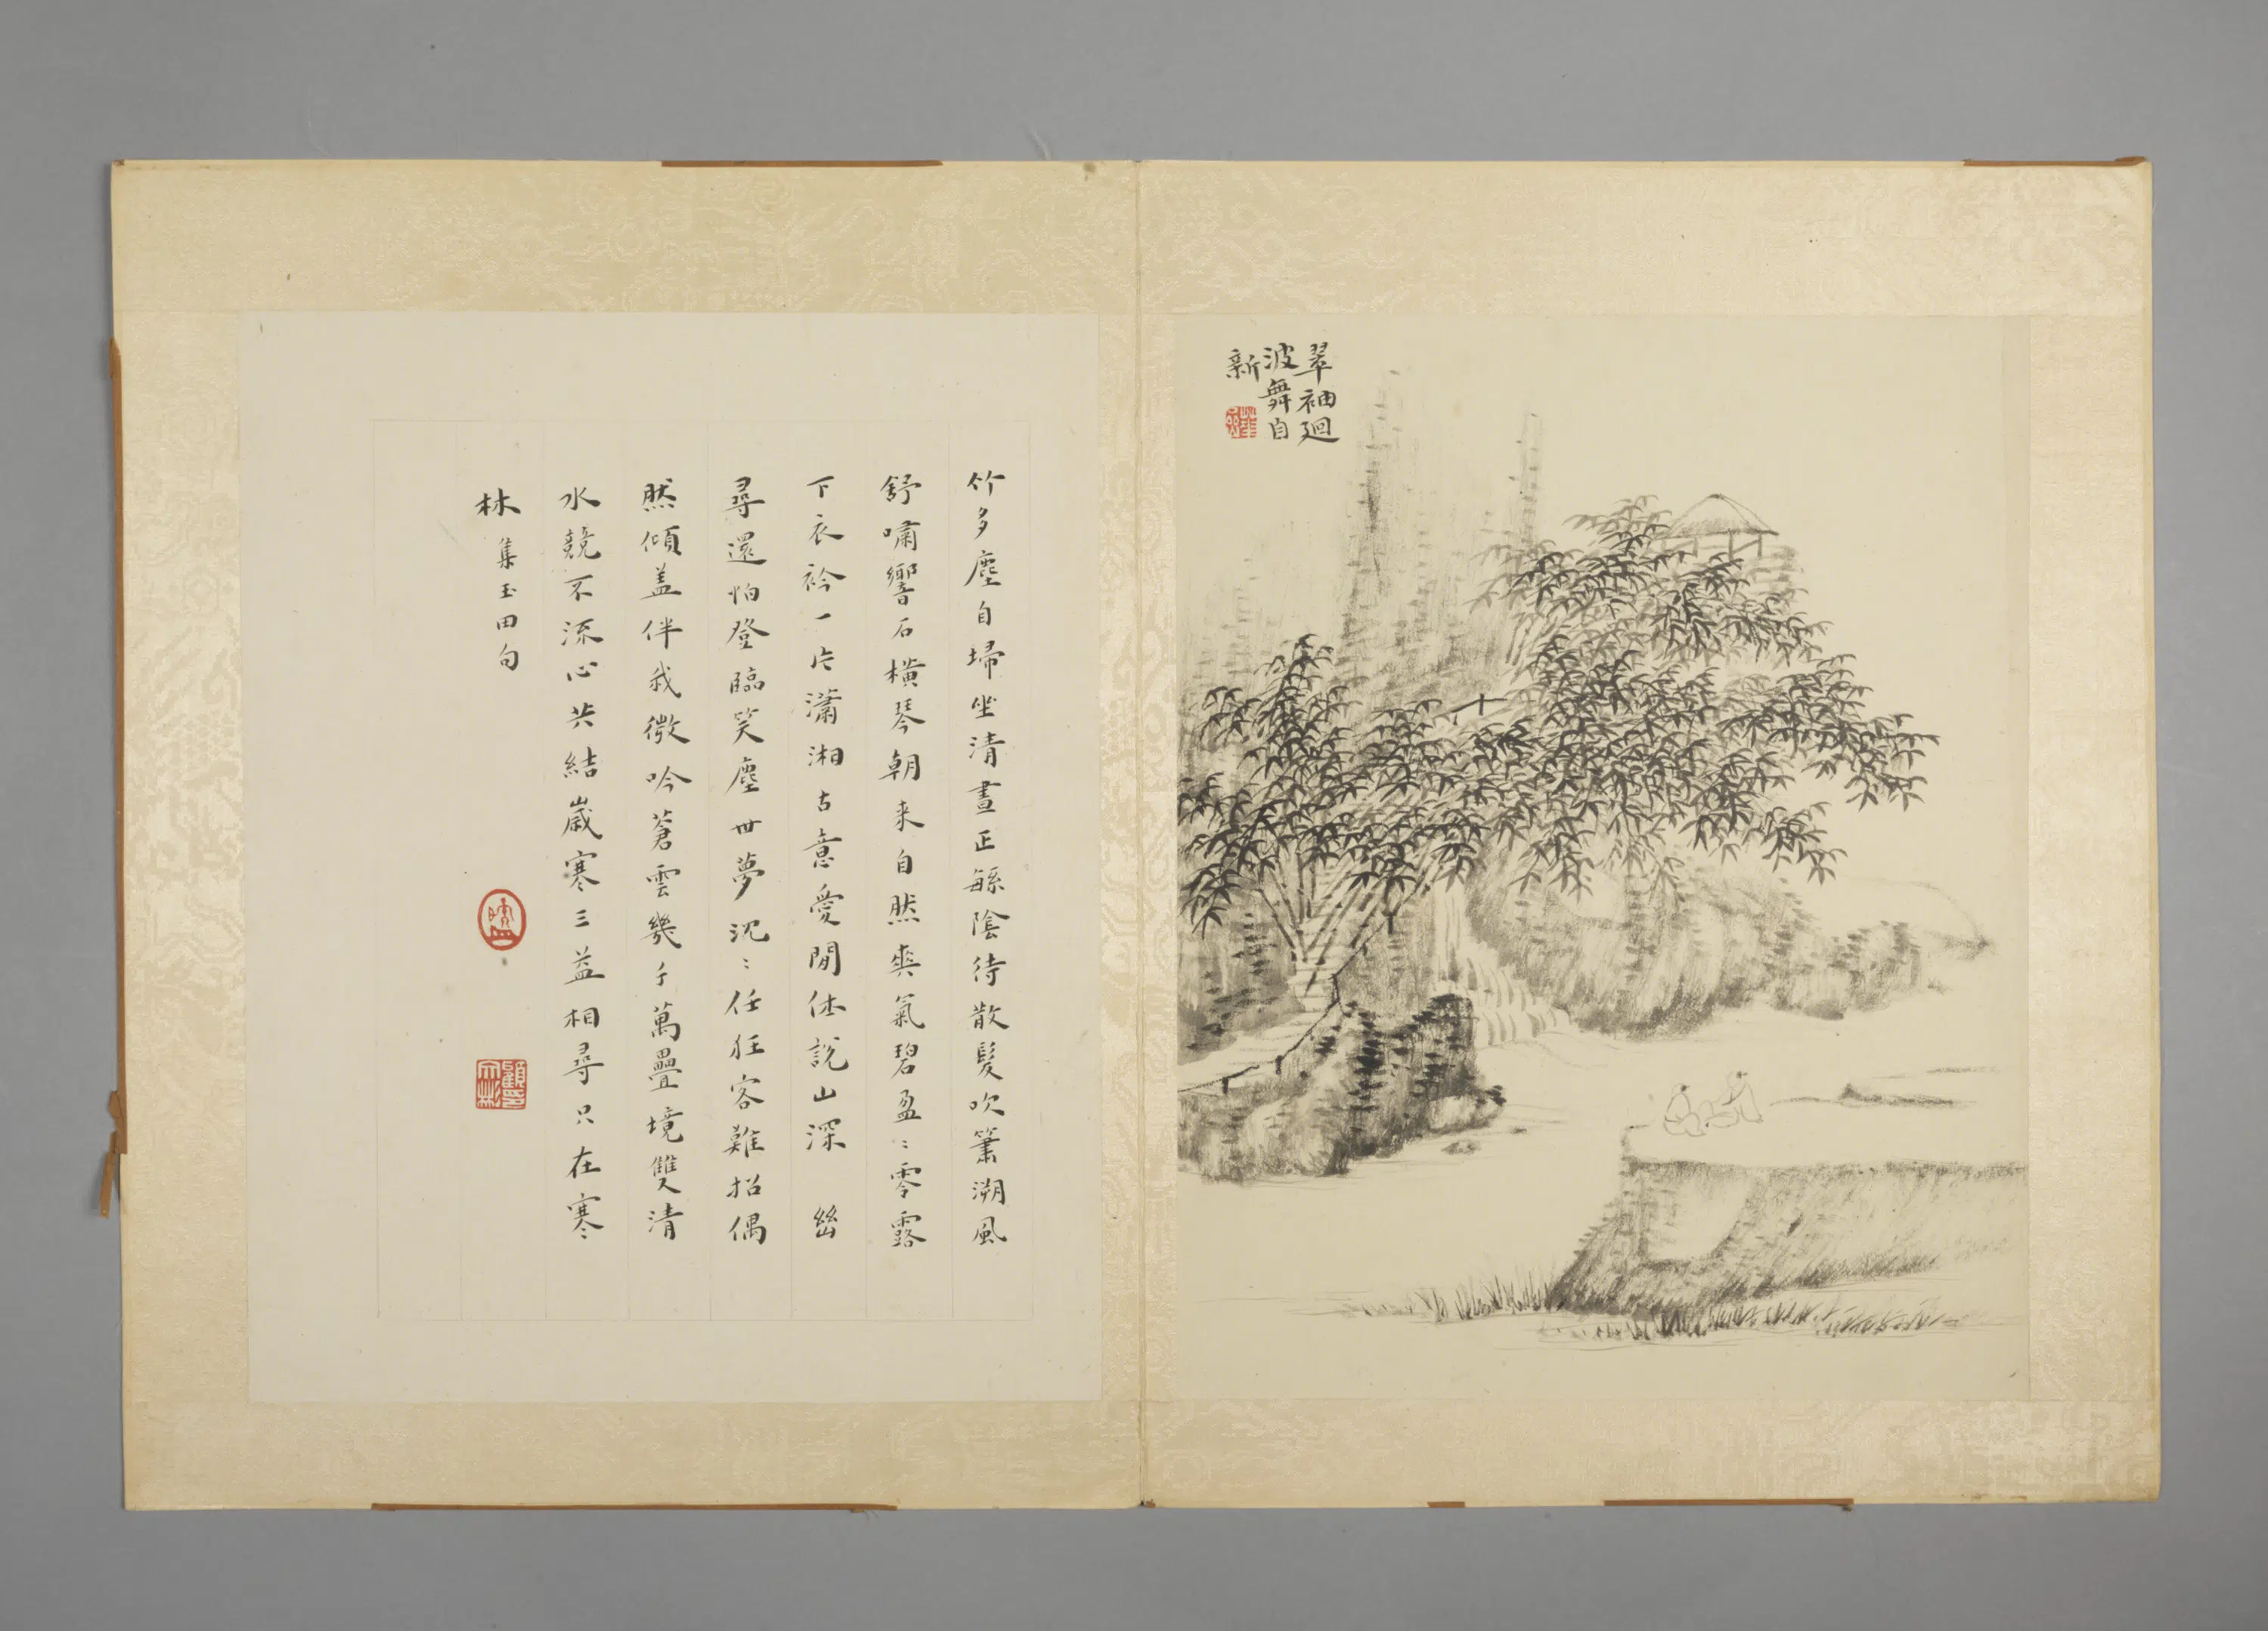 翠袖迴
波舞自
新
竹多塵自掃坐清晝正繇陰待散髮吹簫溯風
舒嘯響石橫琴朝来自然爽氣碧盈〻零露
下衣衿一片瀟湘古意愛閒休說山深
尋還怕登臨笑塵世夢沈〻任狂客難招偶
然傾盖伴我微吟蒼雲幾千萬疊境雙清
水競不流心共結歲寒三益相尋只在寒
林集玉田句